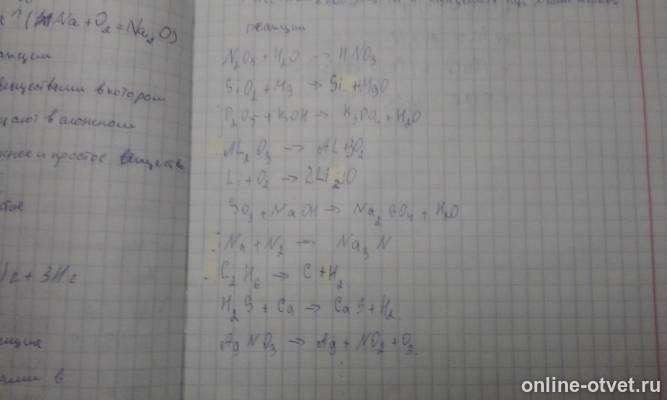 (4Na + O₂ = Na₂O)
веществами в котором
сложном
простое вещество
+ 3H₂
в
реакции
N₂O₅ + H₂O → HNO₃
SiO₂ + Mg → Si + MgO
P₂O₅ + KOH → K₃PO₄ + H₂O
AL₂O₃ →
Li + O₂ → 2Li₂O
SO₃ + NaOH → Na₂SO₄ + H₂O
Na + N₂ → Na₃N
C₂H₆ → C + H₂
H₂S + Ca → CaS + H₂
AgNO₃ → Ag + NO₂ + O₂
online-otvet.ru